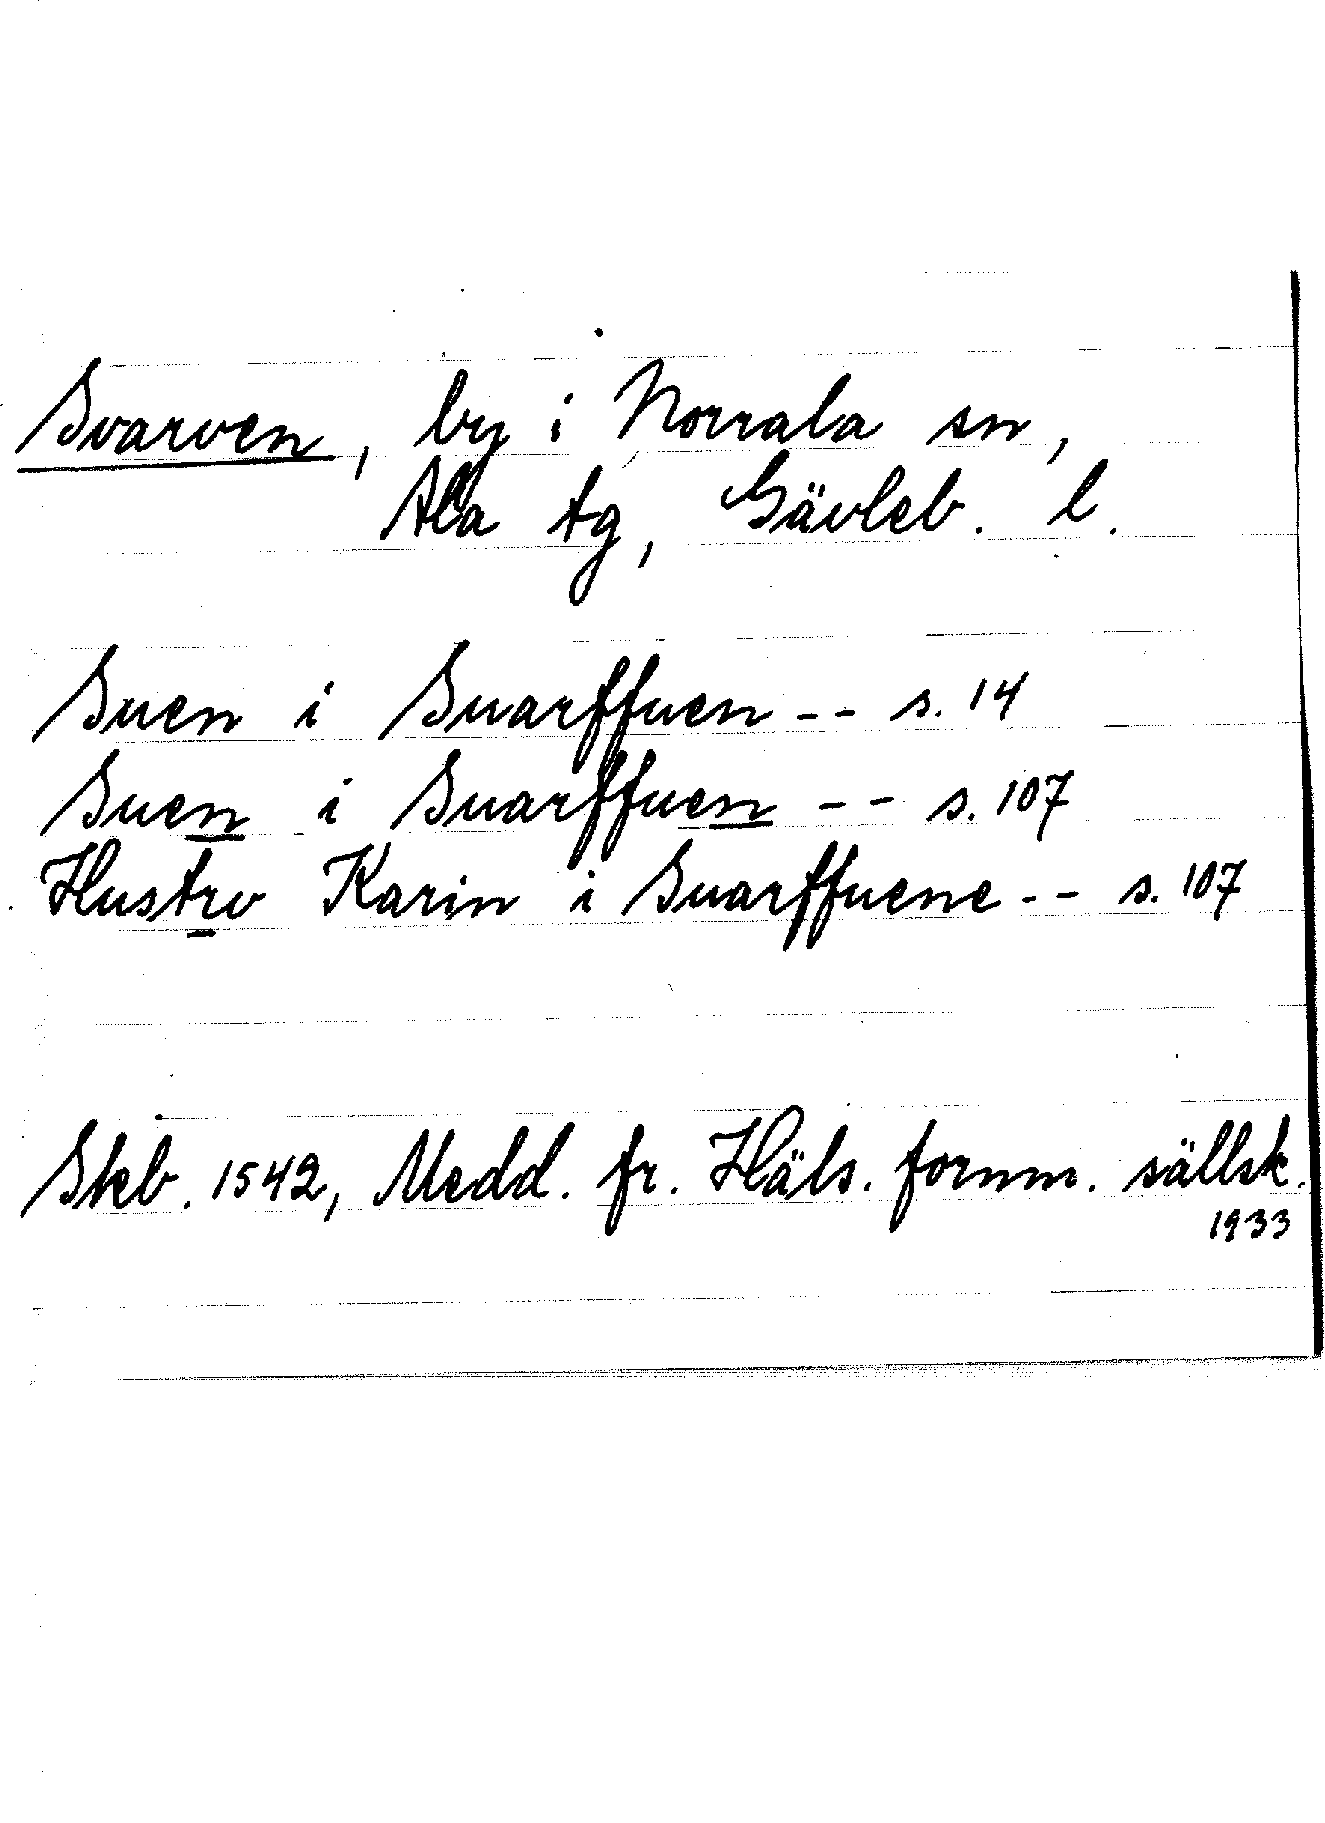 Svarven, by i Norrala sn,
Ala tg, Gävleb. l.
Suen i Suarffuen -- s. 14
Suen i Suarffuen -- s. 107
Hustrv Karin i Suarffuene -- s. 107
Skb. 1542, Medd. fr. Häls. fornm. sällsk.
1933